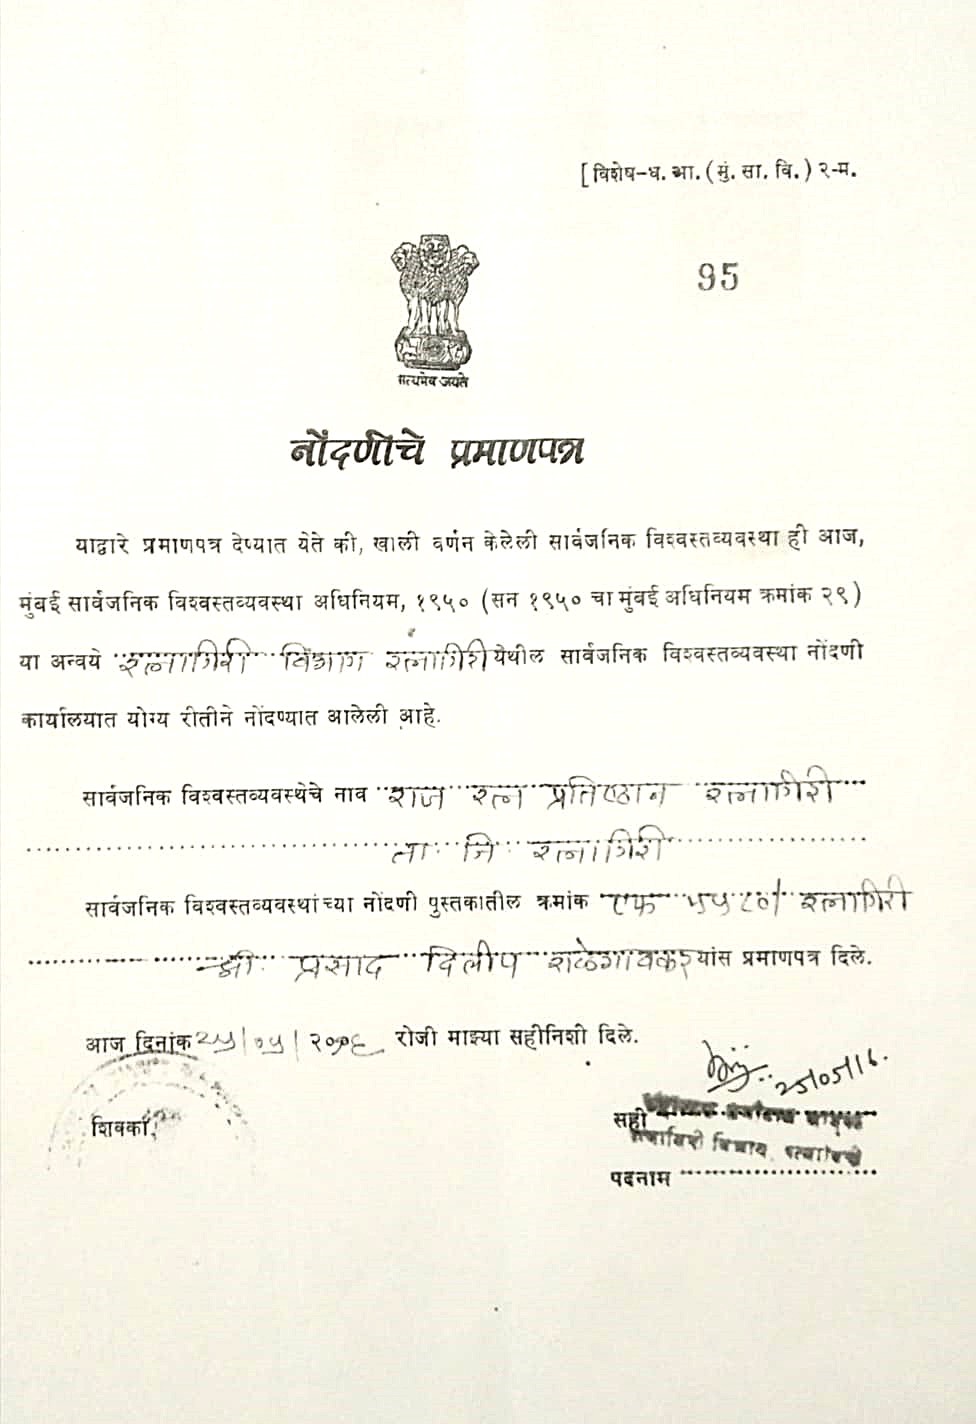 [ विशेष-ध. आ. (मुं. सा. वि.) २-म.
95
सत्यमेव जयते
नोंदणीचे प्रमाणपत्र
याद्वारे प्रमाणपत्र देण्यात येते की, खाली वर्णन केलेली सार्वजनिक विश्वस्तव्यवस्था ही आज,
मुंबई सार्वजनिक विश्वस्तव्यवस्था अधिनियम, १९५० (सन १९५० चा मुंबई अधिनियम क्रमांक २९)
या अन्वये रत्नागिरी विभाग रत्नागिरी येथील सार्वजनिक विश्वस्तव्यवस्था नोंदणी
कार्यालयात योग्य रीतीने नोंदण्यात आलेली आहे.
सार्वजनिक विश्वस्तव्यवस्थेचे नाव राज रत्न प्रतिष्ठान रत्नागिरी
ता. जि. रत्नागिरी
सार्वजनिक विश्वस्तव्यवस्थांच्या नोंदणी पुस्तकातील क्रमांक एफ रत्नागिरी
श्री. प्रसाद दिलीप यांस प्रमाणपत्र दिले.
आज दिनांक २५/०५/२०१६ रोजी माझ्या सहीनिशी दिले.
25/05/16.
शिक्का,
सही
रत्नागिरी विभाग, रत्नागिरी
पदनाम